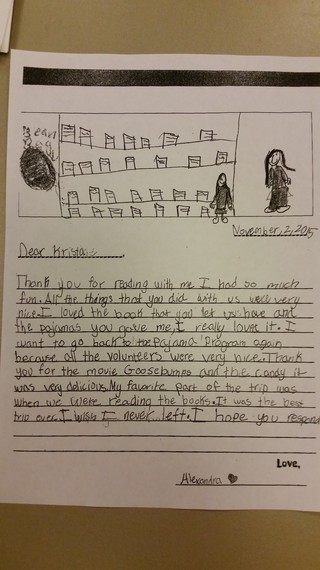 Bean
Bag
November, 2, 2015
Dear Krista,
Thank you for reading with me I had so much
fun. All the things that you did with us were very
nice. I loved the book that you let us have and
the pajamas you gave me, I really loves it. I
want to go back to the Pajama Program again
because all the volunteers were very nice. Thank
you for the movie Goosebumps and the candy it
was very delicious. My favorite part of the trip was
when we were reading the books. It was the best
trip ever. I wish I never left. I hope you respond
Love,
Alexandra